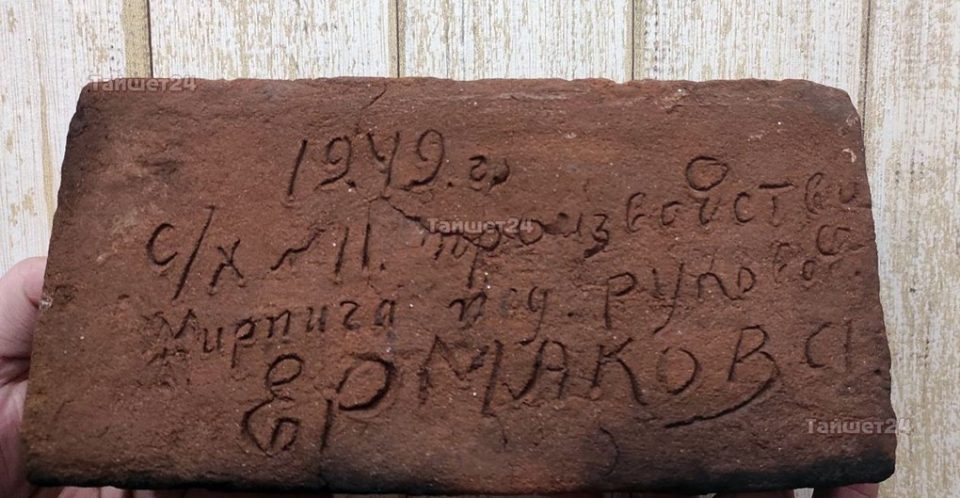 1949. г.
с/х ~ 11. производство
Кирпича под. руков.
ЕРМАКОВ
Тайшет24
Тайшет24
Тайшет24